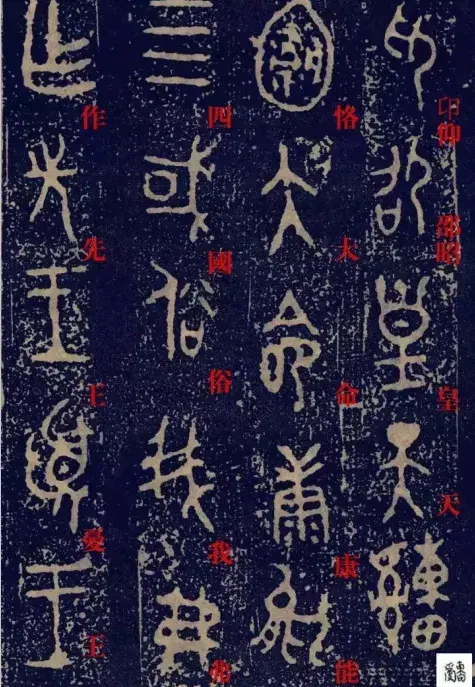 卬仰邵昭皇天
恪大命康能
四國俗我弗
作先王憂王